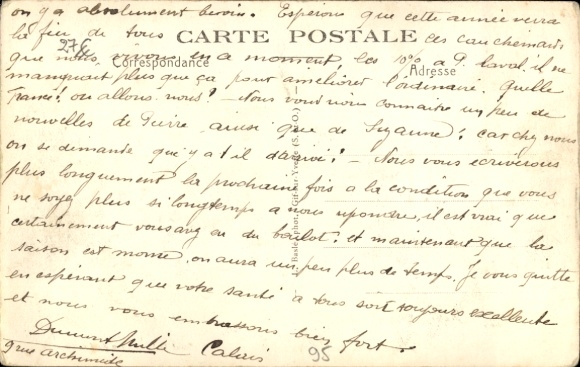 on y a absolument besoin. Espérons que cette année verra
la fin de tous ces cauchemards
CARTE POSTALE
276
que nous vivons en ce moment, les 10% a P. Laval, il ne
Correspondance
Adresse
manquait plus que ça pour améliorer l'ordinaire. Quelle
France! ou allons nous! — Nous voudrions connaitre un peu de
nouvelles de Pierre, ainsi que de Suzanne; car chez nous
on se demande qu'y a t'il d'arrivé! — Nous vous écriverons
plus longuement la prochaine fois a la condition que vous
ne soyez plus si longtemps a nous répondre, il est vrai que
certainement vous avez eu du boulot; et maintenant que la
saison est morte, on aura un peu plus de temps. Je vous quitte
en espérant que votre santé a tous soit toujours excellente
et nous vous embrassons bien fort.
Calais
9 rue archimède
95
phot., Gif-sur-Yvette (S.-&-O.)